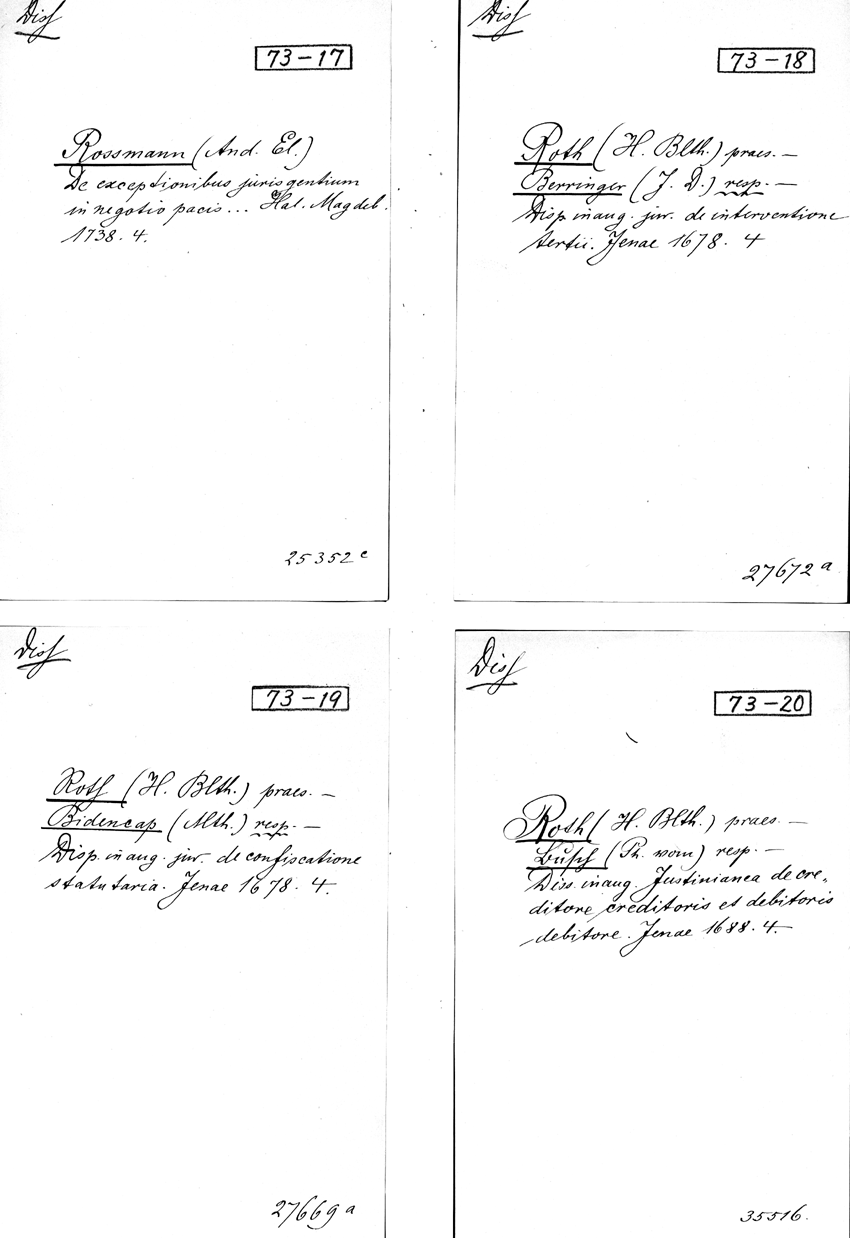 Diss
73-17
Rossmann (And. El.)
De exceptionibus juris gentium
in negotio pacis... Hal. Magdeb.
1738. 4.
25352 c
Diss
73-18
Roth (H. Blth.) praes. —
Berringer (J. D.) resp. —
Disp. inaug. jur. de interventione
tertii. Jenae 1678. 4
27672 a
Diss
73-19
Roth (H. Blth.) praes. —
Bidencap (Mth.) resp. —
Disp. inaug. jur. de confiscatione
statutaria. Jenae 1678. 4.
27669 a
Diss
73-20
Roth (H. Blth.) praes. —
Busch (Ph. vom) resp. —
Diss. inaug. Justinianea de cre-
ditore creditoris et debitoris
debitore. Jenae 1688. 4.
35516.